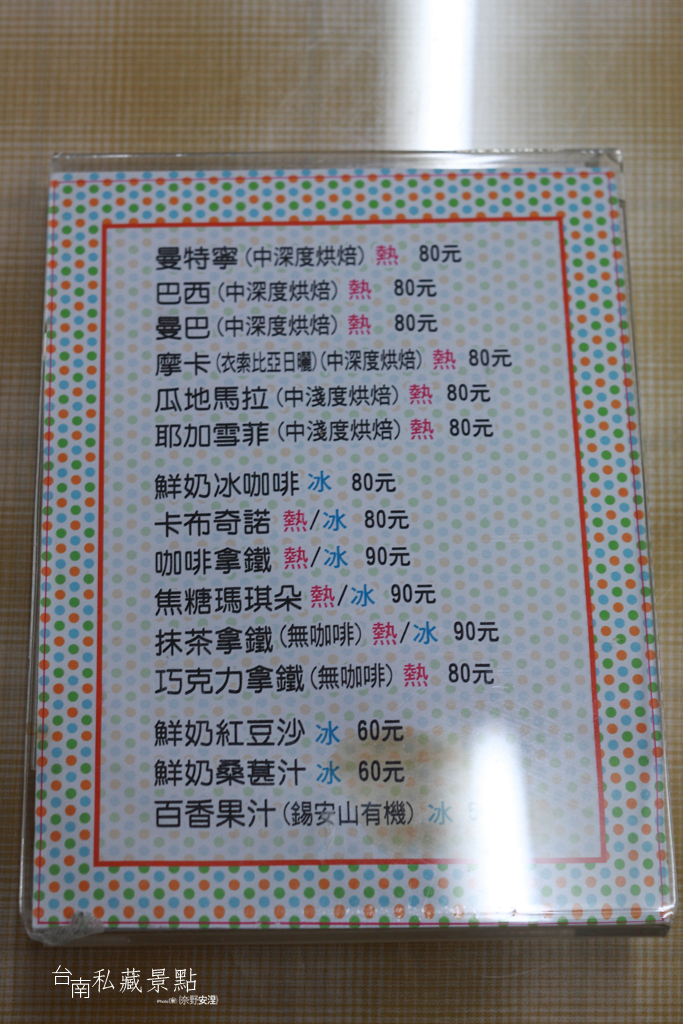 曼特寧(中深度烘焙)熱 80元
巴西(中深度烘焙)熱 80元
曼巴(中深度烘焙)熱 80元
摩卡(衣索比亞日曬)(中深度烘焙)熱 80元
瓜地馬拉(中淺度烘焙)熱 80元
耶加雪菲(中淺度烘焙)熱 80元
鮮奶冰咖啡 冰 80元
卡布奇諾 熱/冰 80元
咖啡拿鐵 熱/冰 90元
焦糖瑪琪朵 熱/冰 90元
抹茶拿鐵(無咖啡)熱/冰 90元
巧克力拿鐵(無咖啡)熱 80元
鮮奶紅豆沙 冰 60元
鮮奶桑葚汁 冰 60元
百香果汁(錫安山有機)冰
台南私藏景點
Photo (奈野安涅)